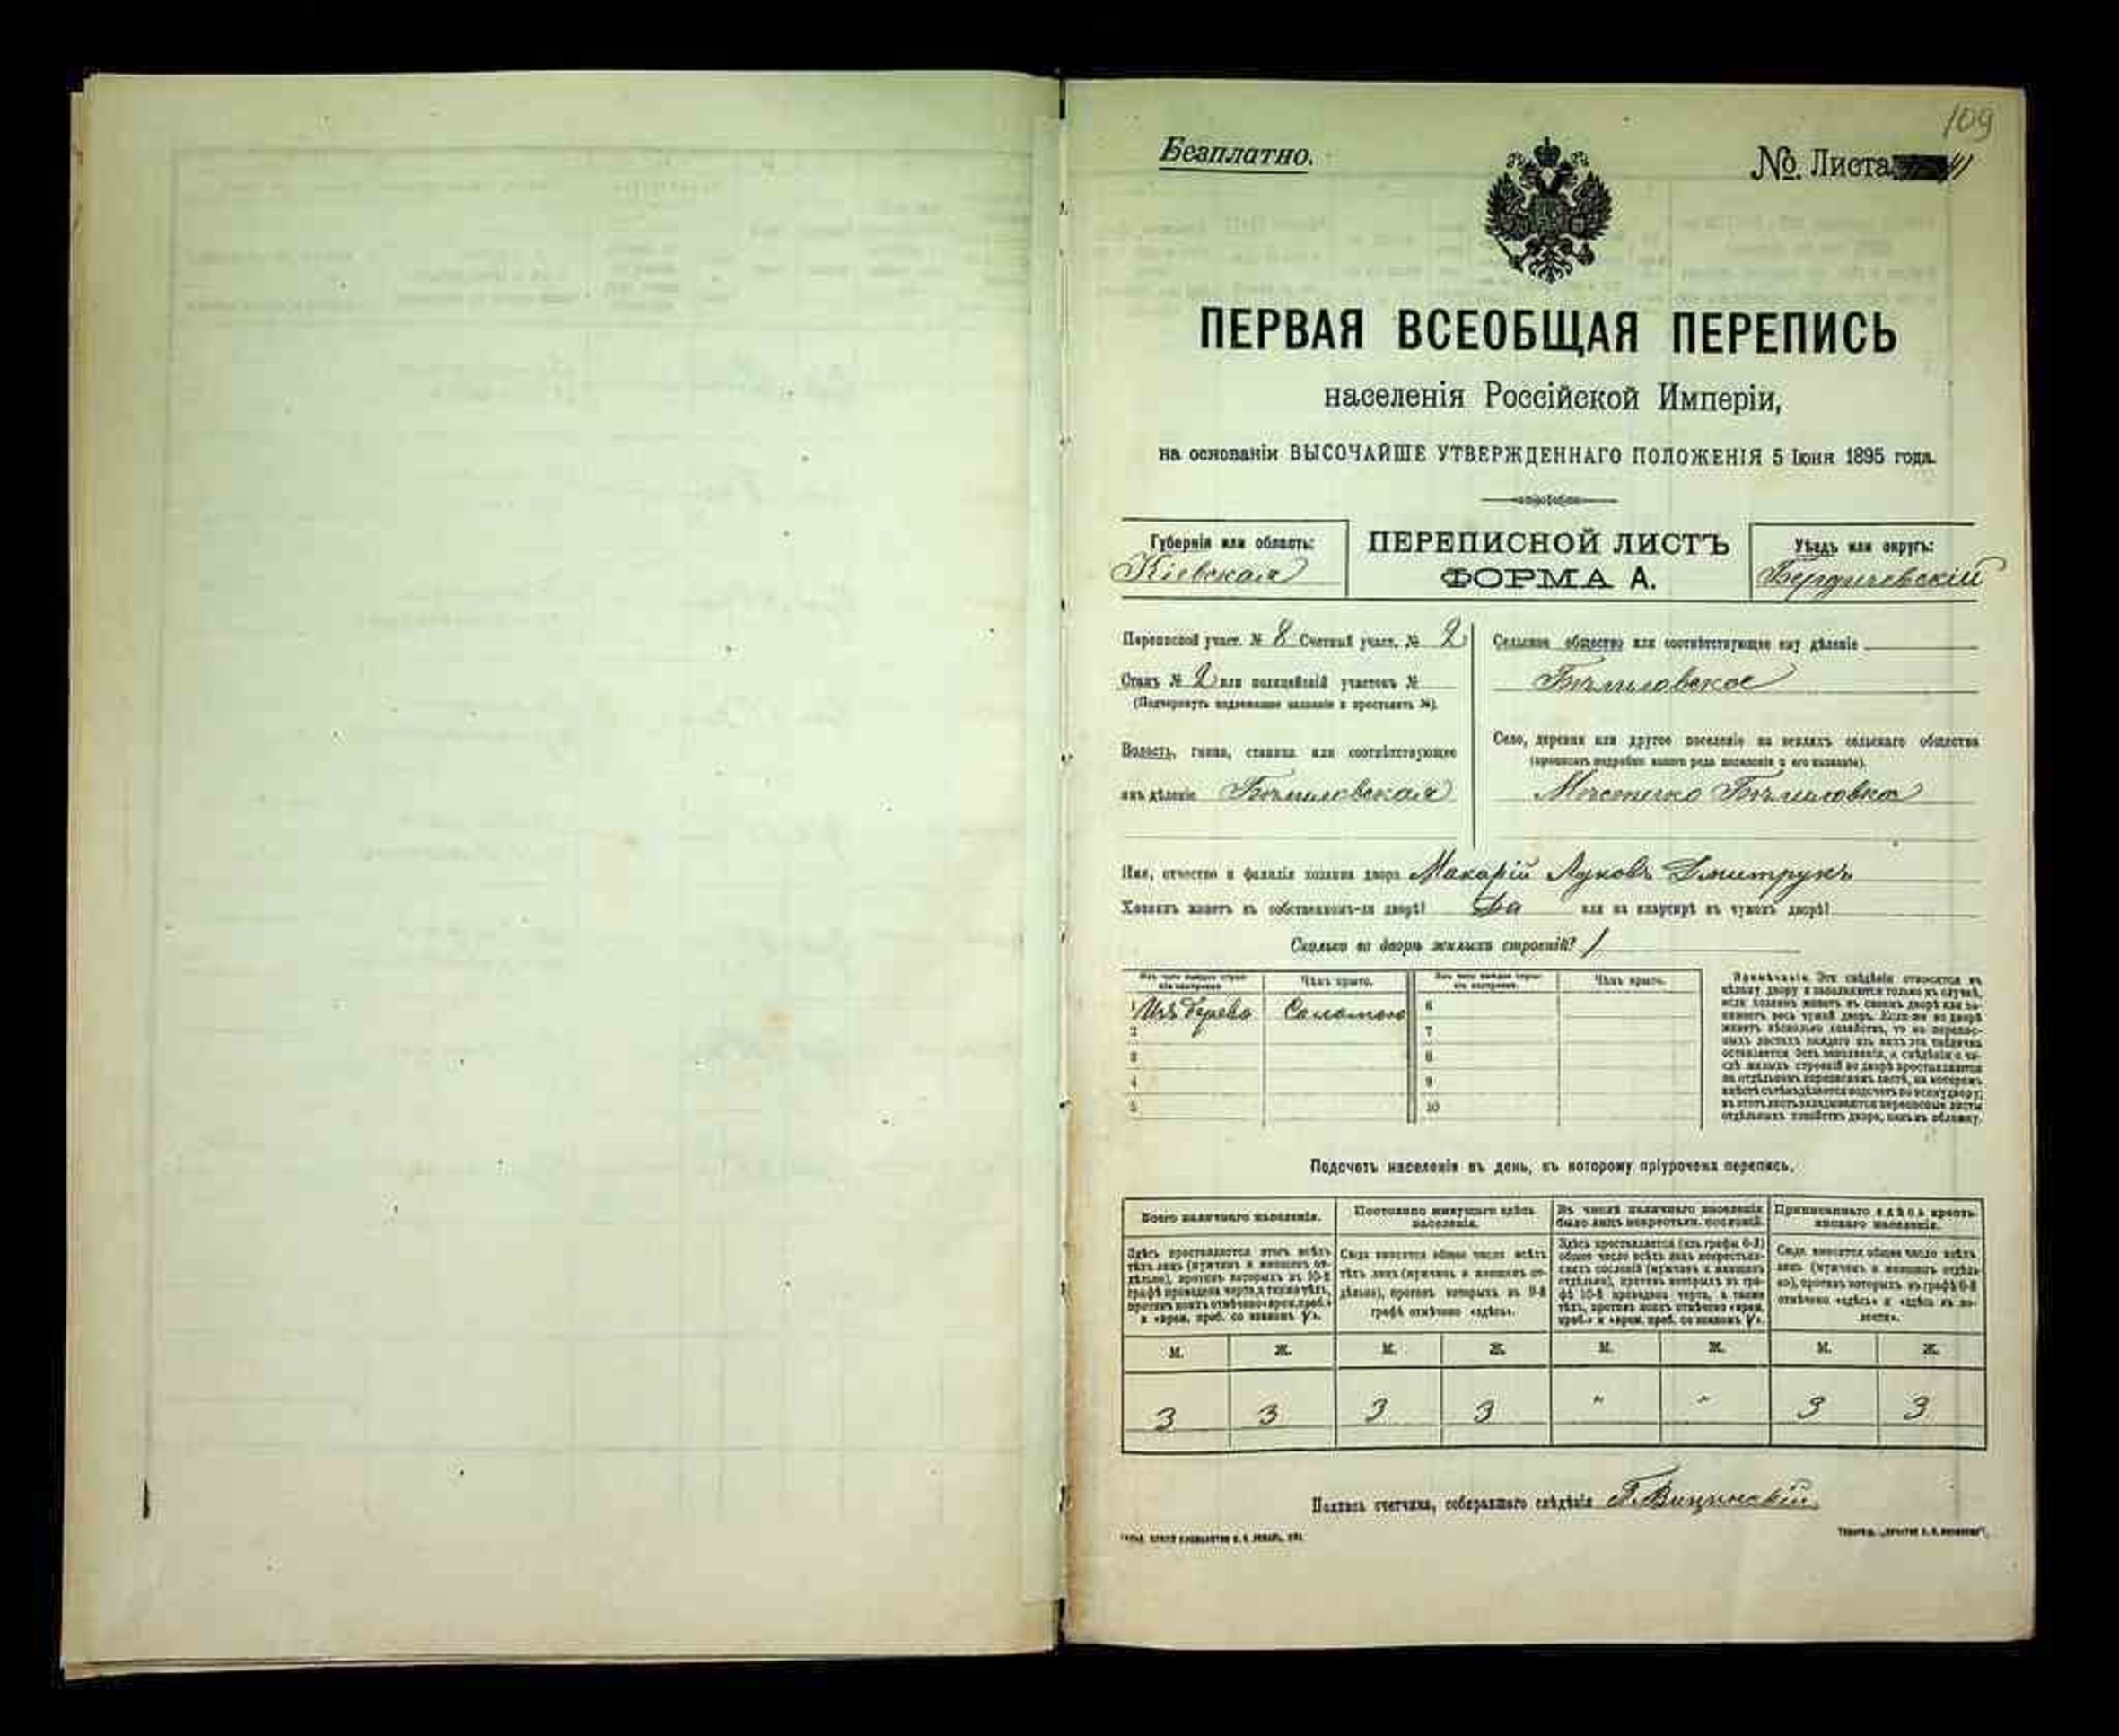 109
Безплатно.
№. Листа 41
ПЕРВАЯ ВСЕОБЩАЯ ПЕРЕПИСЬ
населенія Россійской Имперіи,
на основаніи ВЫСОЧАЙШЕ УТВЕРЖДЕННАГО ПОЛОЖЕНІЯ 5 Іюня 1895 года.
Губернія или область:
Кіевская
ПЕРЕПИСНОЙ ЛИСТЪ
ФОРМА А.
Уѣздъ или округъ:
Бердичевскій
Переписной участ. № 8 Счетный участ. № 2
Станъ № 2 или полицейскій участокъ №
(Подчеркнуть надлежащее названіе и проставить №).
Волость, гмина, станица или соотвѣтствующее
имъ дѣленіе Бѣлиловская
Сельское общество или соотвѣтствующее ему дѣленіе
Бѣлиловское
Село, деревня или другое поселеніе на земляхъ сельскаго общества
(прописать подробно какого рода поселеніе и его названіе).
Мѣстечко Бѣлиловка
Имя, отчество и фамилія хозяина двора Макарій Луковъ Дмитрукъ
Хозяинъ живетъ въ собственномъ-ли дворѣ? Да или на квартирѣ въ чужомъ дворѣ?
Сколько во дворѣ жилыхъ строеній? 1
Изъ чего каждое строеніе построено. Чѣмъ крыто. Изъ чего каждое строеніе построено. Чѣмъ крыто.
1 Изъ дерева Соломою 6
2 7
3 8
4 9
5 10
Примѣчаніе. Эти свѣдѣнія относятся къ
цѣлому двору и заполняются только въ случаѣ,
если хозяинъ живетъ въ своемъ дворѣ или за-
нимаетъ весь чужой дворъ. Если же во дворѣ
живетъ нѣсколько хозяйствъ, то на перепис-
ныхъ листахъ каждаго изъ нихъ эта табличка
оставляется безъ заполненія, а свѣдѣнія о чи-
слѣ жилыхъ строеній во дворѣ проставляются
на отдѣльномъ переписномъ листѣ, на которомъ
вмѣстѣ съ тѣмъ дѣлается подсчетъ по всему двору;
въ этотъ листъ вкладываются переписные листы
отдѣльныхъ хозяйствъ двора, какъ въ обложку.
Подсчетъ населенія въ день, къ которому пріурочена перепись.
Всего наличнаго населенія.
Здѣсь проставляется итогъ всѣхъ
тѣхъ лицъ (мужчинъ и женщинъ от-
дѣльно), противъ которыхъ въ 10-й
графѣ проведена черта, а также тѣхъ,
противъ коихъ отмѣчено «врем. преб.»
и «врем. преб. со знакомъ V».
Постоянно живущаго здѣсь
населенія.
Сюда вносится общее число всѣхъ
тѣхъ лицъ (мужчинъ и женщинъ от-
дѣльно), противъ которыхъ въ 9-й
графѣ отмѣчено «здѣсь».
Въ числѣ наличнаго населенія
было лицъ некрестьян. сословій.
Здѣсь проставляется (изъ графы 6-й)
общее число всѣхъ лицъ некрестьян-
скихъ сословій (мужчинъ и женщинъ
отдѣльно), противъ которыхъ въ гра-
фѣ 10-й проведена черта, а также
тѣхъ, противъ коихъ отмѣчено «врем.
преб.» и «врем. преб. со знакомъ V».
Приписаннаго здѣсь кресть-
янскаго населенія.
Сюда вносится общее число всѣхъ
лицъ (мужчинъ и женщинъ отдѣль-
но), противъ которыхъ въ графѣ 8-й
отмѣчено «здѣсь» и «здѣсь въ во-
лости».
М. Ж. М. Ж. М. Ж. М. Ж.
3 3 3 3 " " 3 3
Подпись счетчика, собиравшаго свѣдѣнія